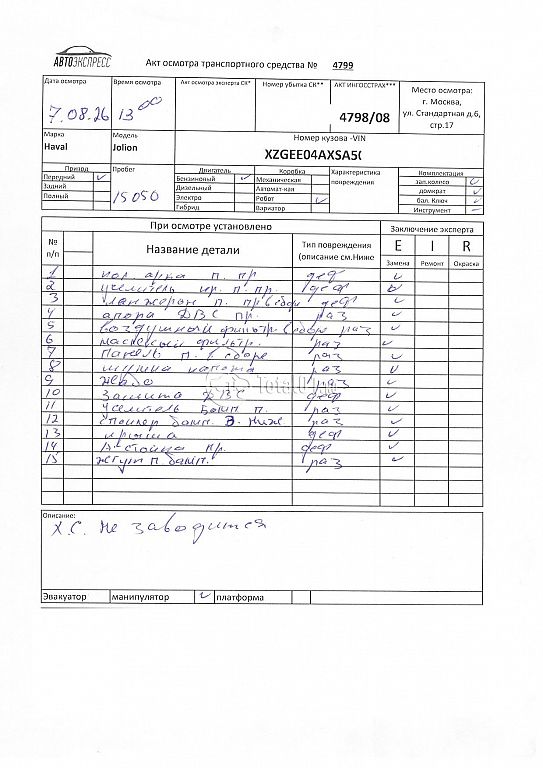 АВТОЭКСПРЕСС
Акт осмотра транспортного средства № 4799
Дата осмотра Время осмотра Акт осмотра эксперта СК* Номер убытка СК** АКТ ИНГОССТРАХ***
7.08.26 13 00 4798/08
Место осмотра:
г. Москва,
ул. Стандартная д.6,
стр.17
Марка Модель Номер кузова -VIN
Haval Jolion XZGEE04AXSA5(
Привод Пробег Двигатель Коробка Характеристика повреждения Комплектация
Передний ✓ Бензиновый ✓ Механическая зап.колесо ✓
Задний Дизельный Автомат-кая домкрат ✓
Полный 15050 Электро Робот ✓ бал. Ключ ✓
Гибрид Вариатор Инструмент –
При осмотре установлено Заключение эксперта
№ п/п Название детали Тип повреждения (описание см.Ниже E I R
Замена Ремонт Окраска
1 кол арка п. пр деф ✓
2 деф
3 п. пр деф ✓
4 ДВС пр. раз ✓
5 воздушный фильтр раз ✓
6 фильтр. раз ✓
7 панель п. в сборе раз ✓
8 капота раз ✓
9 раз ✓
10 защита ДВС деф ✓
11 усилитель бамп п. раз ✓
12 спойлер бамп. ниж раз ✓
13 крыша деф ✓
14 А-стойка пр. деф ✓
15 жгут п. бамп. раз ✓
Описание:
Х.С. не заводится
Эвакуатор манипулятор ✓ платформа